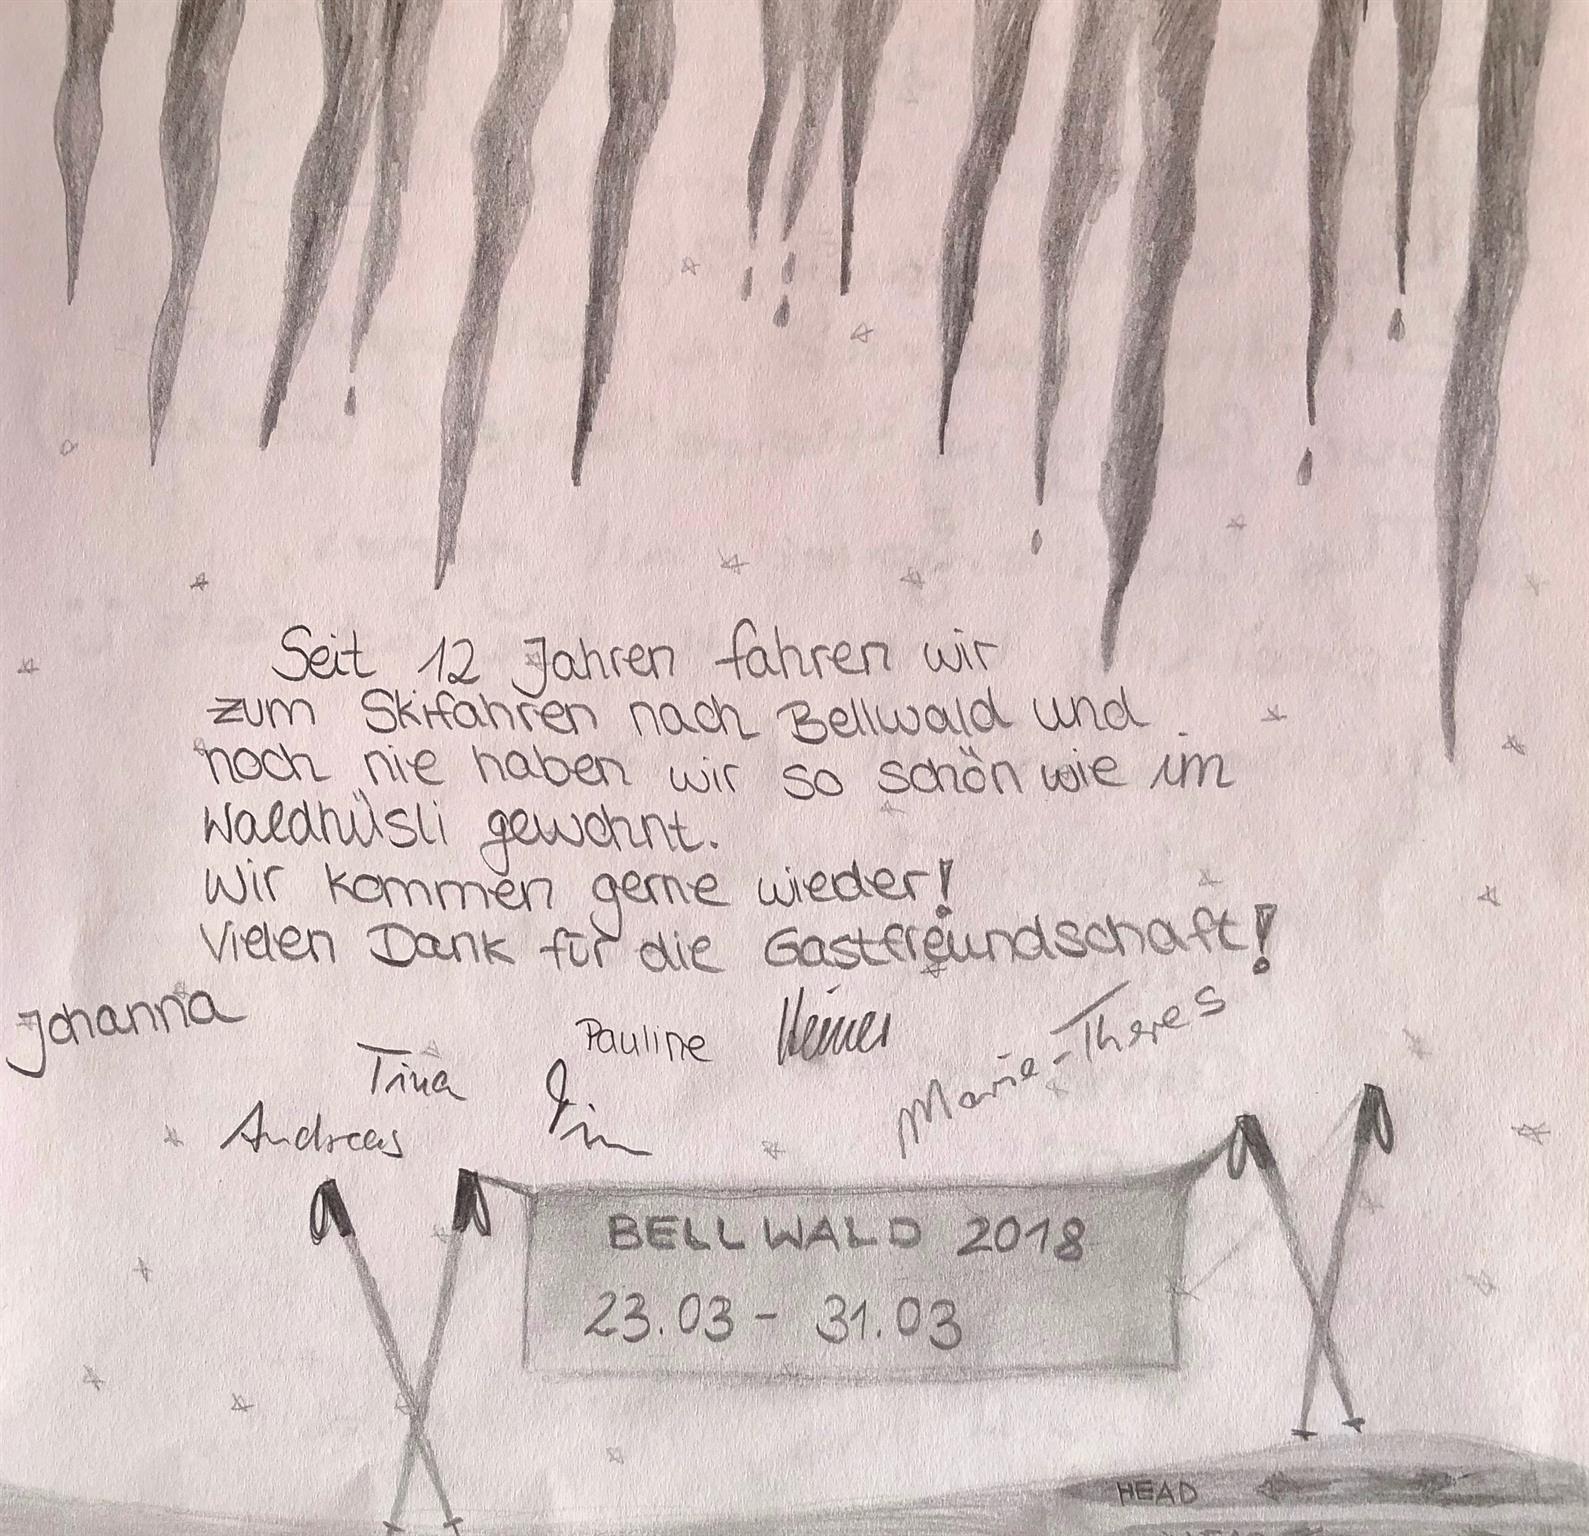 Seit 12 Jahren fahren wir
zum Skifahren nach Bellwald und
noch nie haben wir so schön wie im
Waldhüsli gewohnt.
Wir kommen gerne wieder!
Vielen Dank für die Gastfreundschaft!
Johanna
Tina
Pauline
Heiner
Marie-Theres
Andreas
BELLWALD 2018
23.03 - 31.03
HEAD